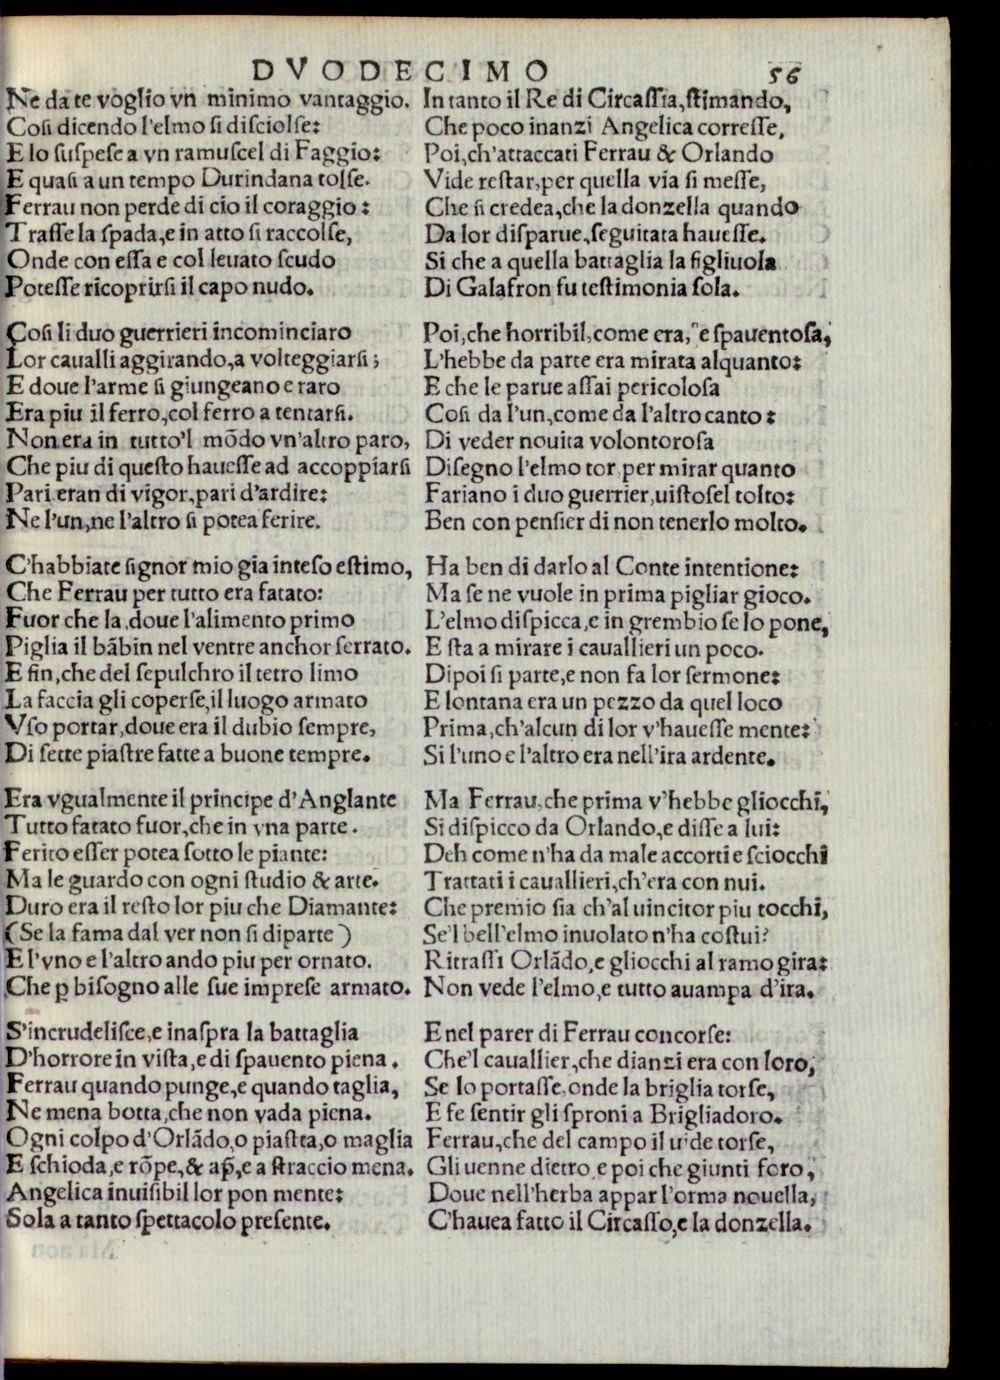 DVODECIMO 56
Ne da te voglio vn minimo vantaggio.
Cosi dicendo l'elmo si disciolse:
E lo suspese a vn ramuscel di Faggio:
E quasi a un tempo Durindana tolse.
Ferrau non perde di cio il coraggio:
Trasse la spada, e in atto si raccolse,
Onde con essa e col leuato scudo
Potesse ricoprirsi il capo nudo.
Cosi li duo guerrieri incominciaro
Lor caualli aggirando, a volteggiarsi;
E doue l'arme si giungeano e raro
Era piu il ferro, col ferro a tentarsi.
Non era in tutto'l mõdo vn'altro paro,
Che piu di questo hauesse ad accoppiarsi
Pari eran di vigor, pari d'ardire:
Ne l'un, ne l'altro si potea ferire.
C'habbiate signor mio gia inteso estimo,
Che Ferrau per tutto era fatato:
Fuor che la, doue l'alimento primo
Piglia il bãbin nel ventre anchor serrato.
E fin, che del sepulchro il tetro limo
La faccia gli coperse, il luogo armato
Vso portar, doue era il dubio sempre,
Di sette piastre fatte a buone tempre.
Era vgualmente il principe d'Anglante
Tutto fatato fuor, che in vna parte.
Ferito esser potea sotto le piante:
Ma le guardo con ogni studio & arte.
Duro era il resto lor piu che Diamante:
(Se la fama dal ver non si diparte)
E l'vno e l'altro ando piu per ornato.
Che ꝑ bisogno alle sue imprese armato.
S'incrudelisce, e inaspra la battaglia
D'horrore in vista, e di spauento piena.
Ferrau quando punge, e quando taglia,
Ne mena botta, che non vada piena.
Ogni colpo d'Orlãdo, o piastra, o maglia
E schioda, e rõpe, & ap̃, e a straccio mena.
Angelica inuisibil lor pon mente:
Sola a tanto spettacolo presente.
In tanto il Re di Circassia, stimando,
Che poco inanzi Angelica corresse,
Poi, ch'attaccati Ferrau & Orlando
Vide restar, per quella via si messe,
Che si credea, che la donzella quando
Da lor disparue, seguitata hauesse.
Si che a quella battaglia la figliuola
Di Galafron fu testimonia sola.
Poi, che horribil, come era, e spauentosa,
L'hebbe da parte era mirata alquanto:
E che le parue assai pericolosa
Cosi da l'un, come da l'altro canto:
Di veder nouita volontorosa
Disegno l'elmo tor per mirar quanto
Fariano i duo guerrier, uistosel tolto:
Ben con pensier di non tenerlo molto.
Ha ben di darlo al Conte intentione:
Ma se ne vuole in prima pigliar gioco.
L'elmo dispicca, e in grembio se lo pone,
E sta a mirare i cauallieri un poco.
Dipoi si parte, e non fa lor sermone:
E lontana era un pezzo da quel loco
Prima, ch'alcun di lor v'hauesse mente:
Si l'uno e l'altro era nell'ira ardente.
Ma Ferrau, che prima v'hebbe gliocchi,
Si dispicco da Orlando, e disse a lui:
Deh come n'ha da male accorti e sciocchi
Trattati i cauallieri, ch'era con nui.
Che premio fia ch'al uincitor piu tocchi,
Se'l bell'elmo inuolato n'ha costui?
Ritrassi Orlãdo, e gliocchi al ramo gira:
Non vede l'elmo, e tutto auampa d'ira.
E nel parer di Ferrau concorse:
Che'l cauallier, che dianzi era con loro,
Se lo portasse, onde la briglia torse,
E fe sentir gli sproni a Brigliadoro.
Ferrau, che del campo il uide torse,
Gli uenne dietro, e poi che giunti foro,
Doue nell'herba appar l'orma nouella,
C'hauea fatto il Circasso, e la donzella.